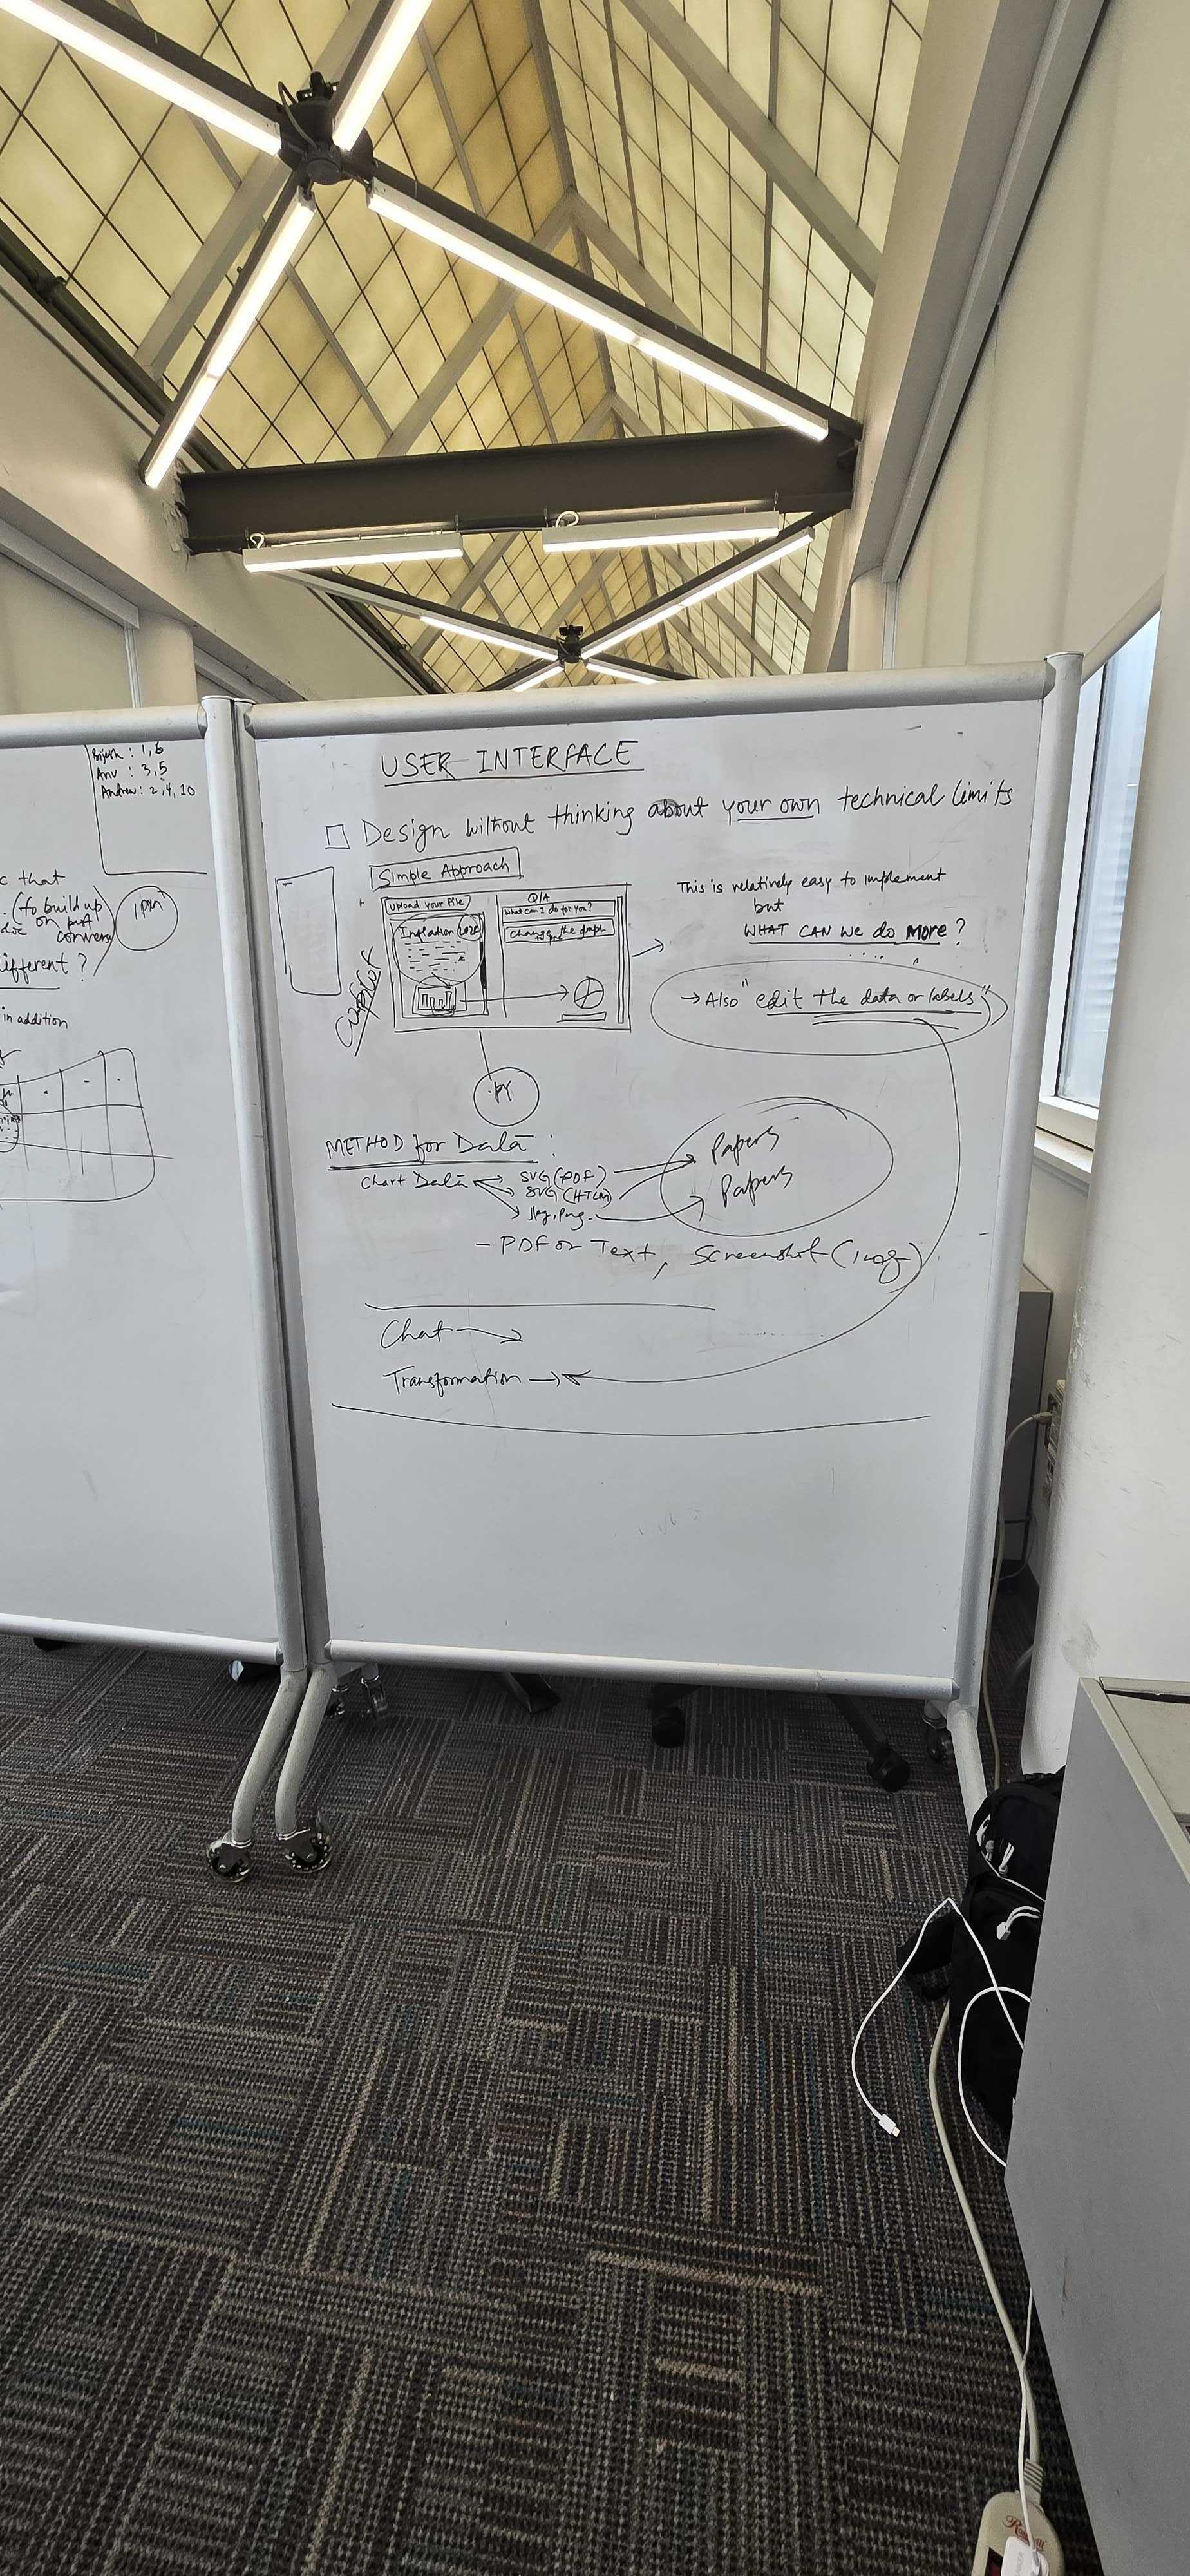 Brijesh : 1,6
Anv : 3,5
Andrew : 2,4,10
c that
(to build up
on past
convers)
1 PM
ifferent ?
in addition
USER INTERFACE
Design without thinking about your own technical limits
Simple Approach
Upload Your File
Inflation 2020
Q/A
What can I do for you?
Change the graph
Copilot
.PY
This is relatively easy to implement
but
WHAT CAN we do more ?
→ Also "edit the data or labels"
METHOD for Data :
Chart Data
SVG (PDF)
SVG (HTML)
Jpg, Png
Papers
Papers
- PDF or Text, Screenshot (img)
Chat →
Transformation →